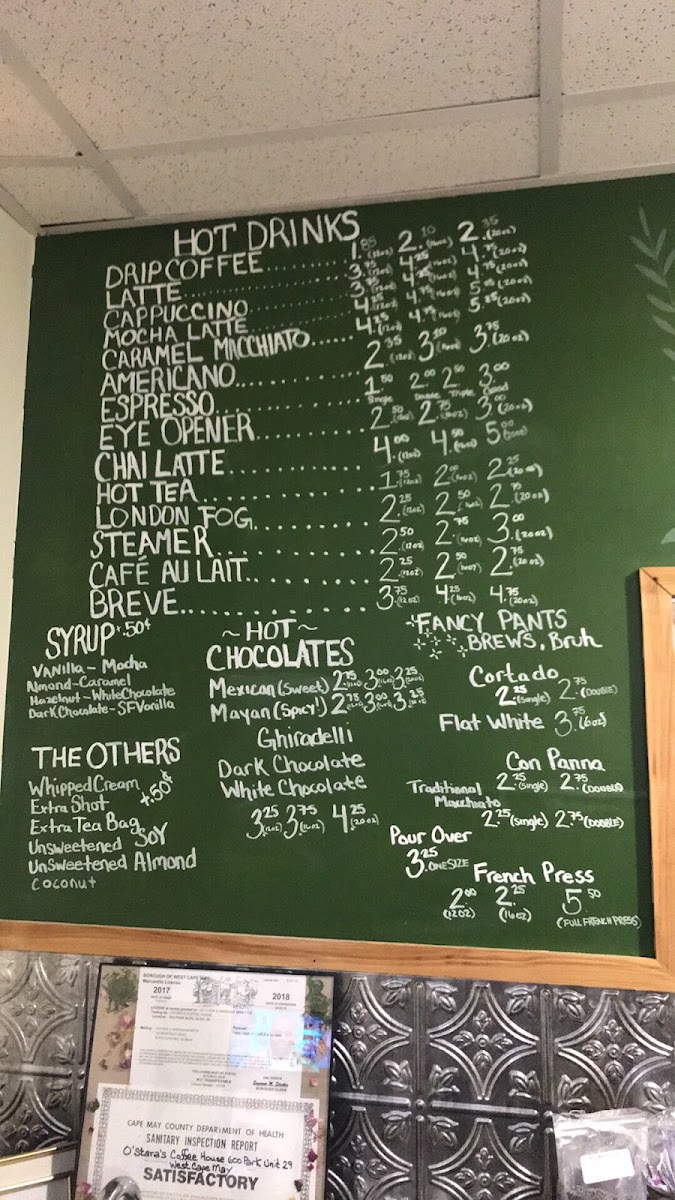 HOT DRINKS
DRIP COFFEE......... 1.85 (12oz) 2.10 (16oz) 2.35 (20oz)
LATTE................ 3.75 (12oz) 4.25 (16oz) 4.75 (20oz)
CAPPUCCINO........ 3.75 (12oz) 4.25 (16oz) 4.75 (20oz)
MOCHA LATTE........ 4.25 (12oz) 4.75 (16oz) 5.25 (20oz)
CARAMEL MACCHIATO...... 4.25 (12oz) 4.75 (16oz) 5.25 (20oz)
AMERICANO........... 2.35 (12oz) 3.20 (16oz) 3.75 (20oz)
ESPRESSO............ 1.50 Single 2.00 Double 2.50 Triple 3.00 Quad
EYE OPENER......... 2.50 (12oz) 2.75 (16oz) 3.00 (20oz)
CHAI LATTE........... 4.00 (12oz) 4.50 (16oz) 5.00 (20oz)
HOT TEA............. 1.75 (12oz) 2.00 (16oz) 2.25 (20oz)
LONDON FOG......... 2.25 (12oz) 2.50 (16oz) 2.75 (20oz)
STEAMER............ 2.50 (12oz) 2.75 (16oz) 3.00 (20oz)
CAFÉ AU LAIT......... 2.25 (12oz) 2.50 (16oz) 2.75 (20oz)
BREVE............... 3.75 (12oz) 4.25 (16oz) 4.75 (20oz)
SYRUP +.50¢
Vanilla - Mocha
Almond - Caramel
Hazelnut - White Chocolate
Dark Chocolate - SF Vanilla
THE OTHERS
Whipped Cream
Extra Shot +.50¢
Extra Tea Bag
Unsweetened SOY
UnSweetened Almond
Coconut
~HOT~
CHOCOLATES
Mexican (Sweet) 2.75 (12oz) 3.00 (16oz) 3.25 (20oz)
Mayan (Spicy!) 2.75 (12oz) 3.00 (16oz) 3.25 (20oz)
Ghiradelli
Dark Chocolate
White Chocolate
3.25 (12oz) 3.75 (16oz) 4.25 (20oz)
FANCY PANTS
BREWS, Bruh
Cortado
2.25 (single) 2.75 (DOUBLE)
Flat White 3.75 (6oz)
Con Panna
2.25 (single) 2.75 (DOUBLE)
Traditional
Macchiato
2.25 (single) 2.75 (DOUBLE)
Pour Over
3.25 ONE SIZE
French Press
2.00 (12oz) 2.25 (16oz) 5.50 (FULL FRENCH PRESS)
BOROUGH OF WEST CAPE MAY
Mercantile License
2017 2018
CAPE MAY COUNTY DEPARTMENT OF HEALTH
SANITARY INSPECTION REPORT
O'Stara's Coffee House 600 Park Unit 29
West Cape May
SATISFACTORY